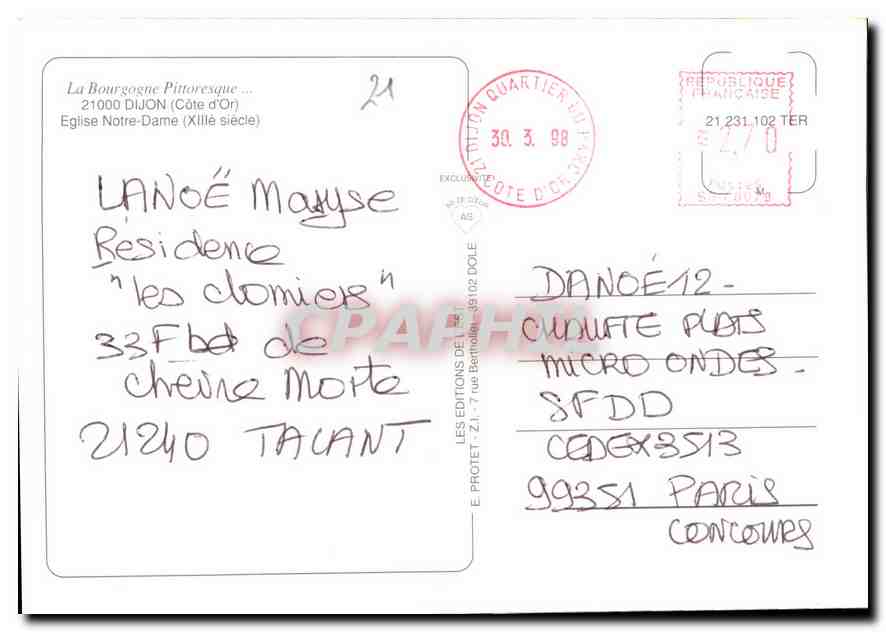 La Bourgogne Pittoresque ...
21000 DIJON (Côte d'Or)
Eglise Notre-Dame (XIIIè siècle)
21
LANOË Maryse
Résidence
"les clomiers"
33F bd de
chèvre Morte
21240 TALANT
EXCLUSIVITÉ
AS DE CŒUR
AS
LES EDITIONS DE L'EST
E. PROTET - Z.I. - 7 rue Berthollet - 39102 DOLE
21 DIJON QUARTIER DU PARC
30. 3. 98
CÔTE D'OR
REPUBLIQUE
FRANCAISE
21 231 102 TER
2,70
POSTES
DANOÉ12-
CHAUFFE PLATS
MICRO ONDES-
SFDD
CEDEX3513
99351 PARIS
CONCOURS
CPAPHIL